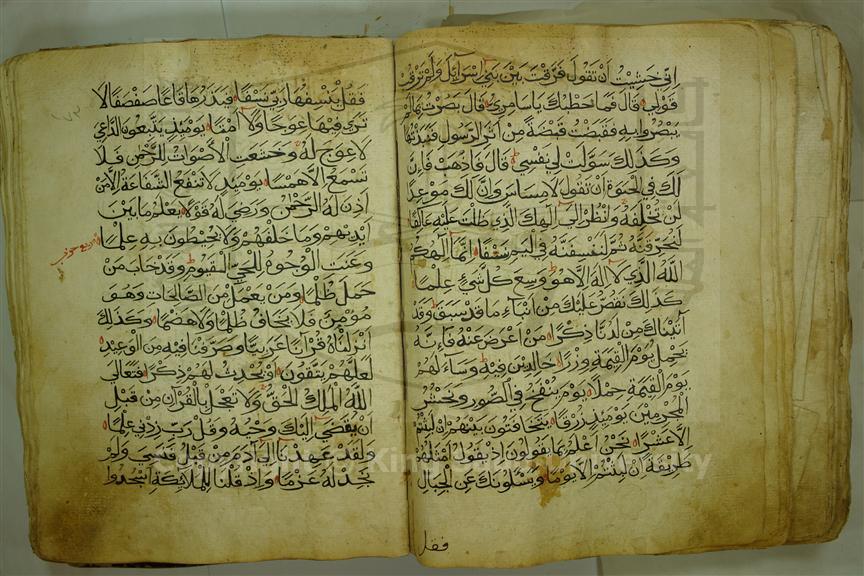 إني خشيت أن تقول فرقت بين بني إسرائيل ولم ترقب
قولي قال فما خطبك يا سامري قال بصرت بما لم
يبصروا به فقبضت قبضة من أثر الرسول فنبذتها
وكذلك سولت لي نفسي قال فاذهب فإن
لك في الحيوة أن تقول لا مساس وإن لك موعدا
لن تخلفه وانظر إلى إلهك الذي ظلت عليه عاكفا
لنحرقنه ثم لننسفنه في اليم نسفا إنما إلهكم
الله الذي لا إله إلا هو وسع كل شيء علما
كذلك نقص عليك من أنباء ما قد سبق وقد
آتيناك من لدنا ذكرا من أعرض عنه فإنه
يحمل يوم القيمة وزرا خالدين فيه وساء لهم
يوم القيمة حملا يوم ينفخ في الصور ونحشر
المجرمين يومئذ زرقا يتخافتون بينهم إن لبثتم
إلا عشرا نحن أعلم بما يقولون إذ يقول أمثلهم
طريقة إن لبثتم إلا يوما ويسئلونك عن الجبال
فقل
فقل ينسفها ربي نسفا فيذرها قاعا صفصفا لا
ترى فيها عوجا ولا أمتا يومئذ يتبعون الداعي
لا عوج له وخشعت الأصوات للرحمن فلا
تسمع إلا همسا يومئذ لا تنفع الشفاعة إلا من
أذن له الرحمن ورضي له قولا يعلم ما بين
أيديهم وما خلفهم ولا يحيطون به علما
وعنت الوجوه للحي القيوم وقد خاب من
حمل ظلما ومن يعمل من الصالحات وهو
مؤمن فلا يخاف ظلما ولا هضما وكذلك
أنزلناه قرآنا عربيا وصرفنا فيه من الوعيد
لعلهم يتقون أو يحدث لهم ذكرا فتعالى
الله الملك الحق ولا تعجل بالقرآن من قبل
أن يقضى إليك وحيه وقل رب زدني علما
ولقد عهدنا إلى آدم من قبل فنسي ولم
نجد له عزما وإذ قلنا للملائكة اسجدوا